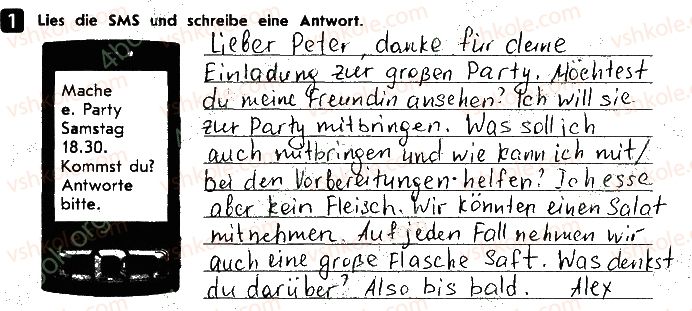 1 Lies die SMS und schreibe eine Antwort.
Mache
e. Party
Samstag
18.30.
Kommst du?
Antworte
bitte.
Lieber Peter, danke für deine
Einladung zur großen Party. Möchtest
du meine Freundin ansehen? Ich will sie
zur Party mitbringen. Was soll ich
auch mitbringen und wie kann ich mit/
bei den Vorbereitungen helfen? Ich esse
aber kein Fleisch. Wir könnten einen Salat
mitnehmen. Auf jeden Fall nehmen wir
auch eine große Flasche Saft. Was denkst
du darüber? Also bis bald. Alex